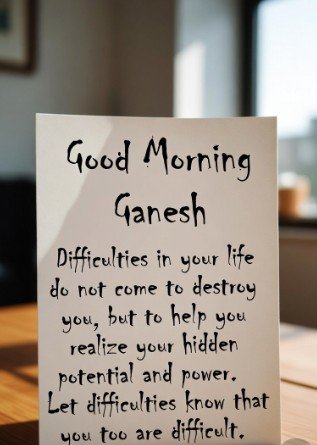 Good Morning
Ganesh
Difficulties in your life
do not come to destroy
you, but to help you
realize your hidden
potential and power.
Let difficulties know that
you too are difficult.